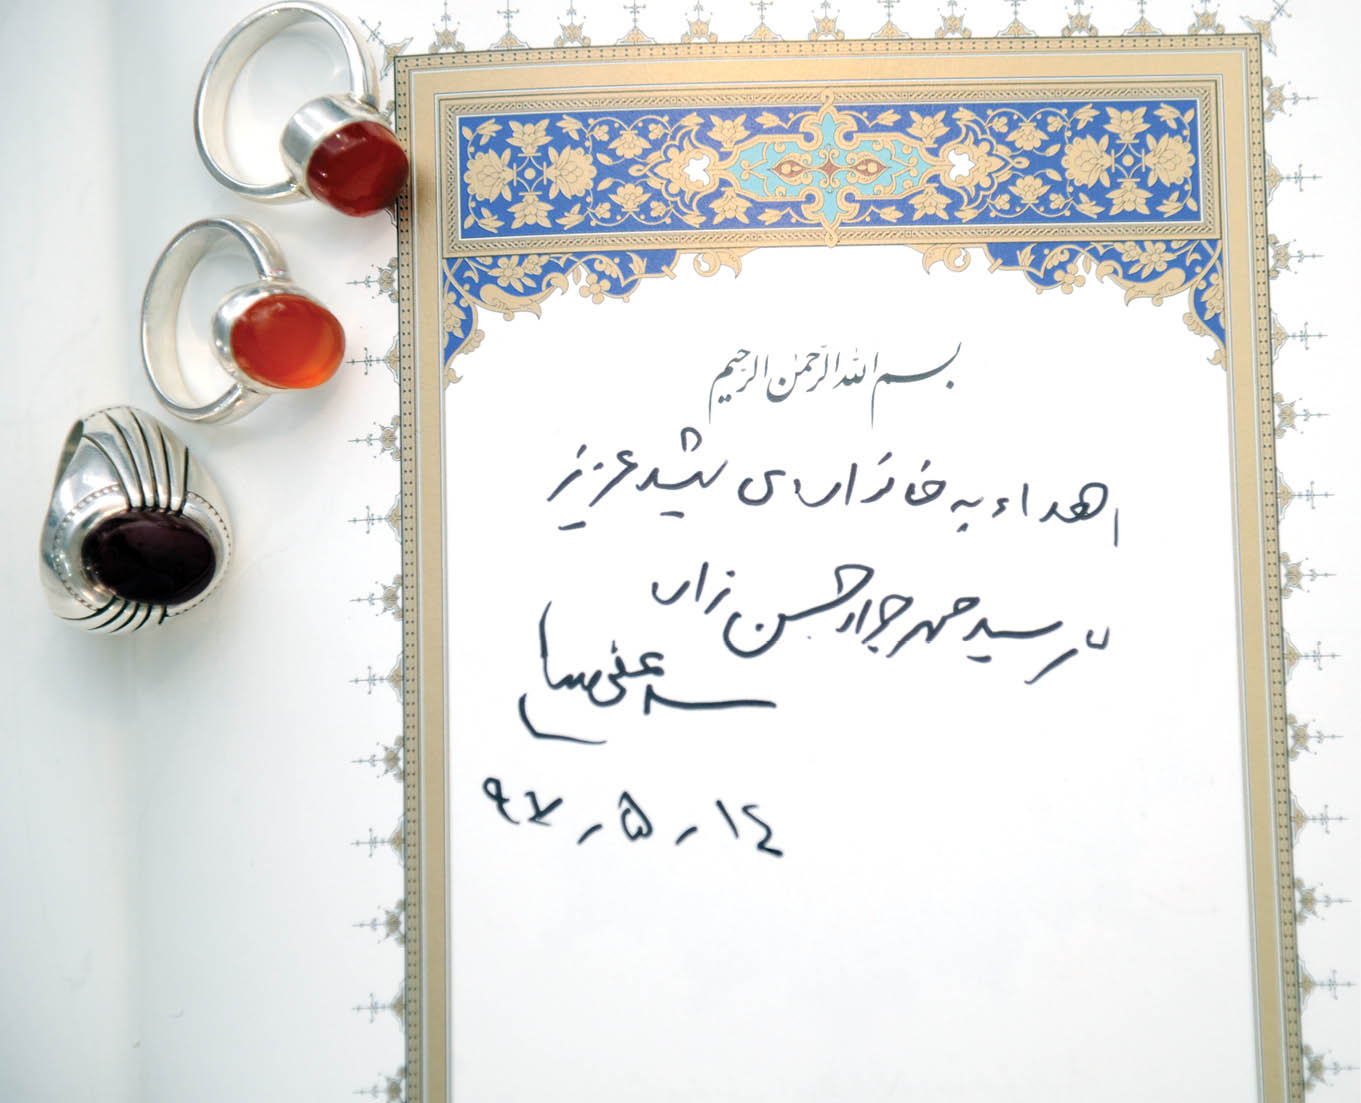 بسم الله الرحمن الرحیم
اهداء به خانواده‌ی شهید عزیز
سید محمد جواد حسن زاده
۹۷٫۵٫۱٤